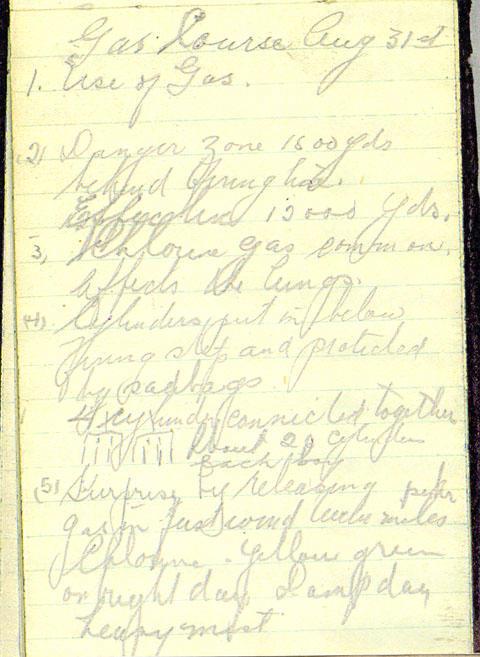 Gas Course Aug 31st
1. Use of Gas.
(2) Danger zone 1500 yds
behind firing line.
12000 yds.
3, Chlorine gas common.
affects the lungs.
(4) Cylinders put in below
firing step and protected
by sadbags
4 cylinders connected together
About 20 cylinders
each bay
(5) Surprise, by releasing
gas in just wind miles
Chlorine - Yellow green
on bright day, Damp day
heavy mist